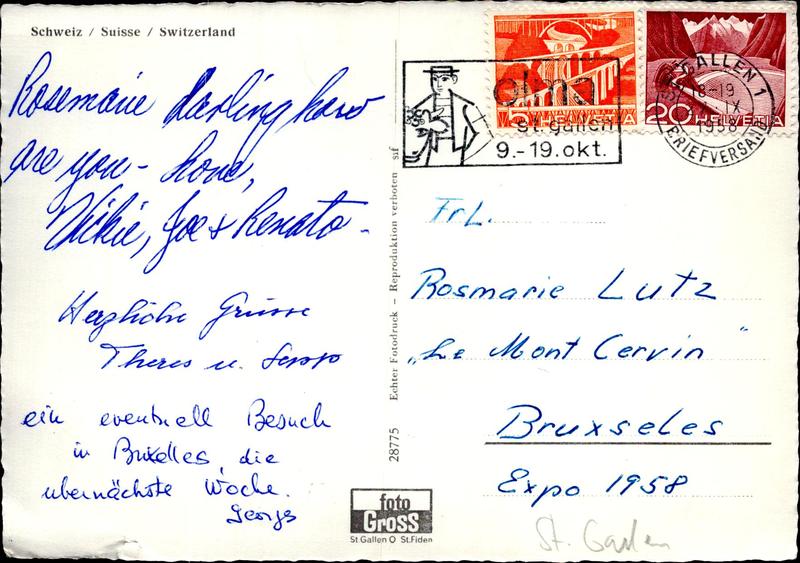 Schweiz / Suisse / Switzerland
Rosemarie darling how
are you - love,
Vickie, Joe & Renato -
Herzliche Grüsse
Theres u.
ein eventuell Besuch
in Bruxelles, die
übernächste Woche.
Georges
28775 Echter Fotodruck – Reproduktion verboten sif
foto
GROSS
St Gallen O St.Fiden
olma
st. gallen
9.-19. okt.
5 HELVETIA
20 HELVETIA
ST. GALLEN 1
18-19
IX
1958
BRIEFVERSAND
Frl.
Rosmarie Lutz
„Le Mont Cervin"
Bruxseles
Expo 1958
St. Gallen